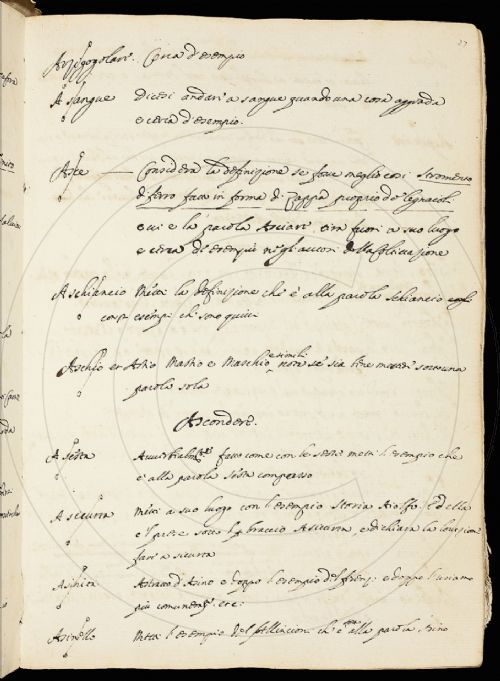 27
Arzigogolare. Cerca d'esempio
A sangue dicesi andare a sangue quando una cosa aggrada
e cerca d'esempio.
Asce Considera la definizione se fosse meglio così. Stromento
di ferro fatto in forma di Zappa proprio de legnaioli
e vi è la parola Asciare fuori a suo luogo
e cerca di esempio negli autori della Coltivazione
A schiancio Metti la definizione che è alla parola schiancio
esempi che sono quivi
Aschio et Astio Mastio e Maschio e simili se sia bene metter sotto una
parola sola
Ascondere.
A sesta fatto come con le seste metti l'esempio che
è alla parola sesta compasso
A sicurtà Metti a suo luogo con l'esempio Storia Aiolfo. Ed ella
sotto braccio A sicurtà, e dichiara la
fare a sicurtà
d'Asino e doppo l'esempio del e doppo l'usiamo
più comunemte. etc:
Asinello Metti l'esempio del che è alla parola Asino